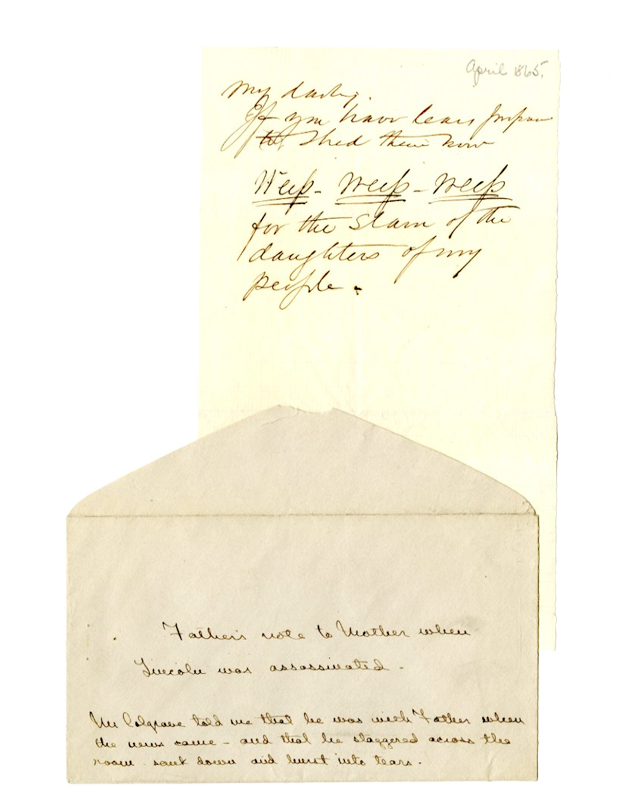 April 1865.
My darling.
If you have tears prepare
to shed them now
Weep - Weep - Weep
for the slain of the
daughters of my
people.
Father's note to Mother when
Lincoln was assassinated.
Mr Colgrave told me that he was with Father when
the news came - and that he staggered across the
room sank down and burst into tears.